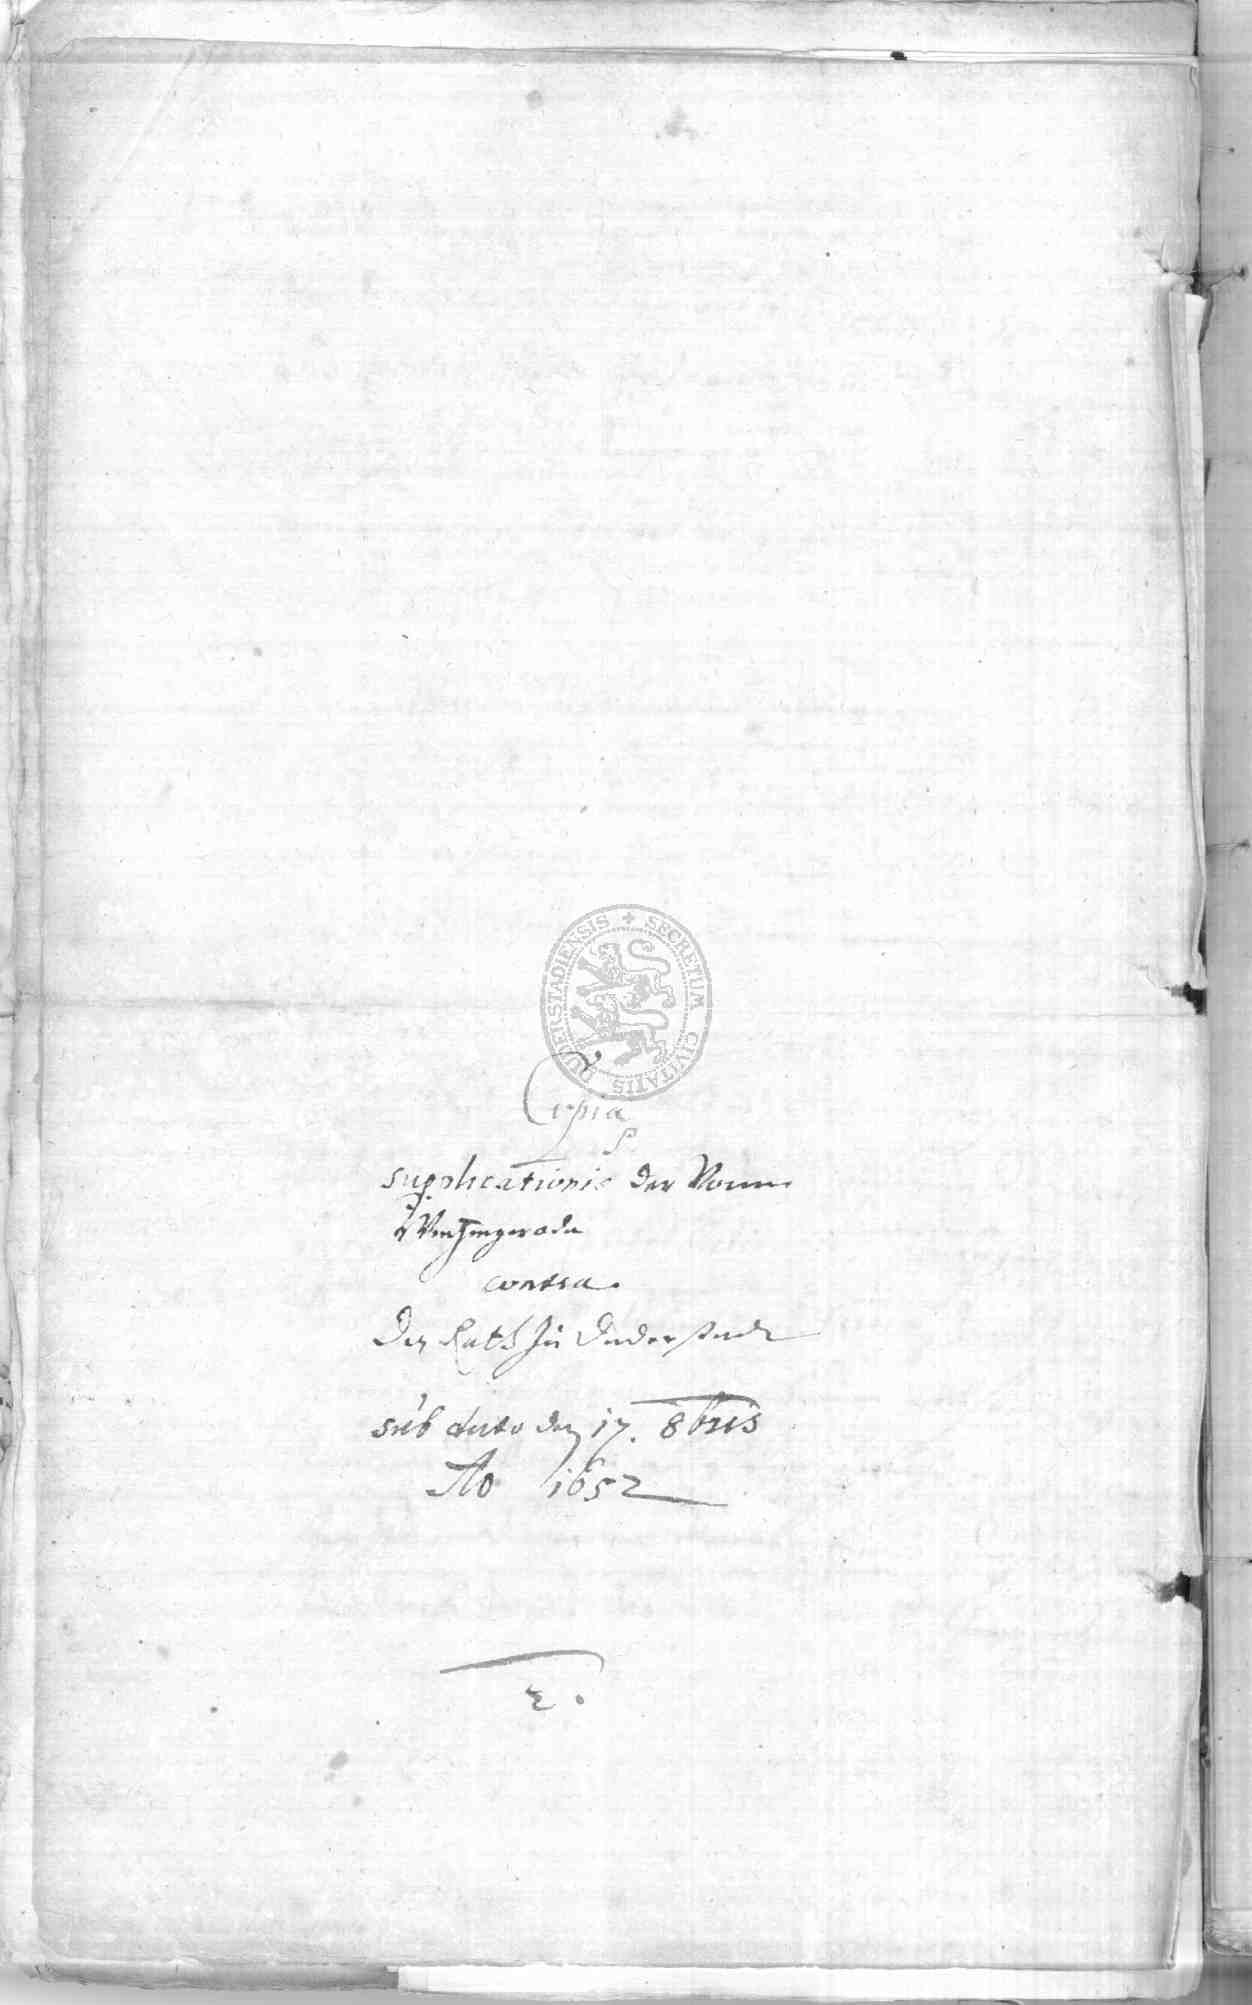 SECRETUM CIVITATIS DUDERSTADIENSIS
Copia
supplicationis der Vonn
Wintzingeroda
contra.
Den Rath zu Duderstadt
sub dato den 17. 8bris
Ao 1652